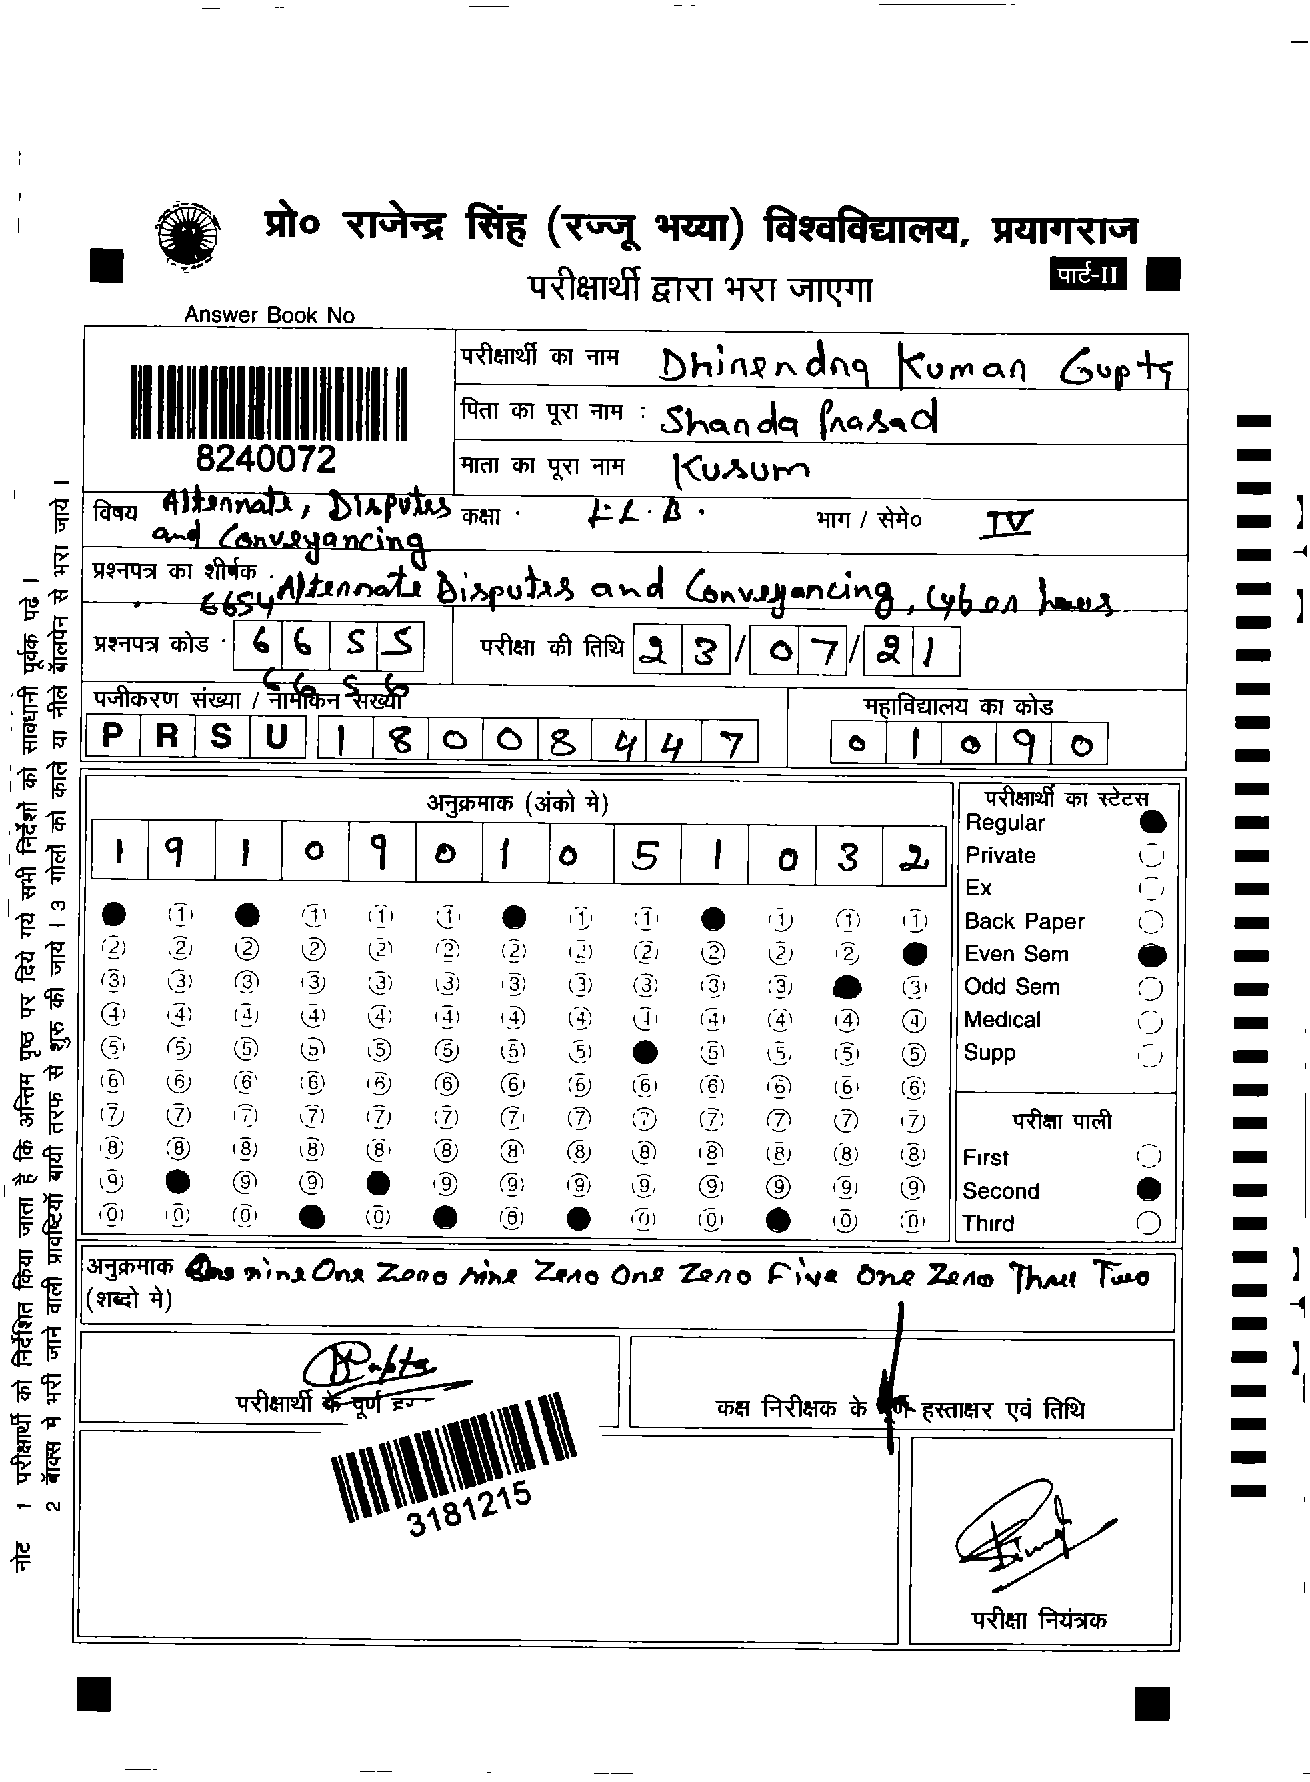 प्रो० राजेन्द्र सिंह (रज्जू भय्या) विश्वविद्यालय, प्रयागराज
परीक्षार्थी द्वारा भरा जाएगा
पार्ट-II
Answer Book No
8240072
परीक्षार्थी का नाम Dhirendra Kumar Gupta
पिता का पूरा नाम : Sharda Prasad
माता का पूरा नाम Kusum
विषय Alternate, Disputes and Conveyancing
कक्षा L.L.B.
भाग / सेमे० IV
प्रश्नपत्र का शीर्षक Alternate Disputes and Conveyancing, Cyber
6654
प्रश्नपत्र कोड 6 6 5 5
6656
परीक्षा की तिथि 23/07/21
पजीकरण संख्या / नामांकन संख्या
P R S U 1 8 0 0 8 4 4 7
महाविद्यालय का कोड
0 1 0 9 0
अनुक्रमाक (अंको मे)
1 9 1 0 9 0 1 0 5 1 0 3 2
1 1 1 1 1 1 1 1 1
2 2 2 2 2 2 2 2 2 2 2 2
3 3 3 3 3 3 3 3 3 3 3 3
4 4 4 4 4 4 4 4 4 4 4 4 4
5 5 5 5 5 5 5 5 5 5 5 5
6 6 6 6 6 6 6 6 6 6 6 6 6
7 7 7 7 7 7 7 7 7 7 7 7 7
8 8 8 8 8 8 8 8 8 8 8 8 8
9 9 9 9 9 9 9 9 9 9 9
0 0 0 0 0 0 0 0 0
परीक्षार्थी का स्टेटस
Regular
Private
Ex
Back Paper
Even Sem
Odd Sem
Medical
Supp
परीक्षा पाली
First
Second
Third
अनुक्रमाक One nine One Zero nine Zero One Zero Five One Zero Three Two
(शब्दो मे)
Gupta
परीक्षार्थी के पूर्ण
कक्ष निरीक्षक के हस्ताक्षर एवं तिथि
3181215
परीक्षा नियंत्रक
नोट 1 परीक्षार्थी को निर्देशित किया जाता है कि अन्तिम पृष्ठ पर दिये गये सभी निर्देशों को सावधानी पूर्वक पढें।
2 बॅाक्स मे भरी जाने वाली प्रविष्टियॉ बायी तरफ से शुरू की जाये। 3 गोलों को काले या नीले बॉलपेन से भरा जाये।